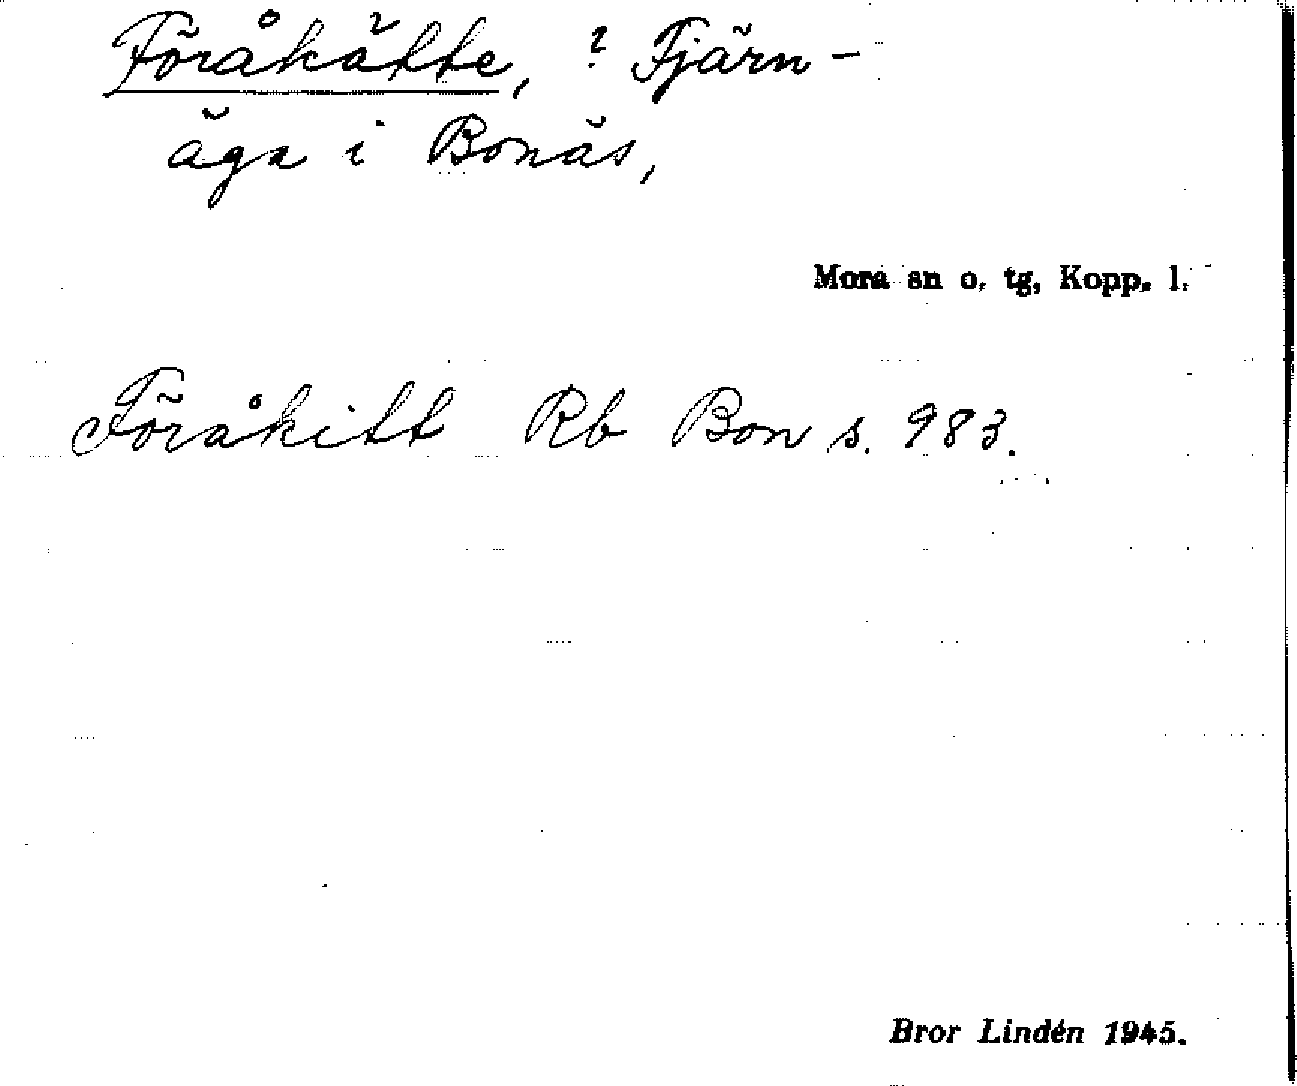 Föråkätte, ? Fjärn-
äga i Bonäs,
Mora sn o. tg, Kopp. l.
Föråkitt Rb Bon s. 983.
Bror Lindén 1945.